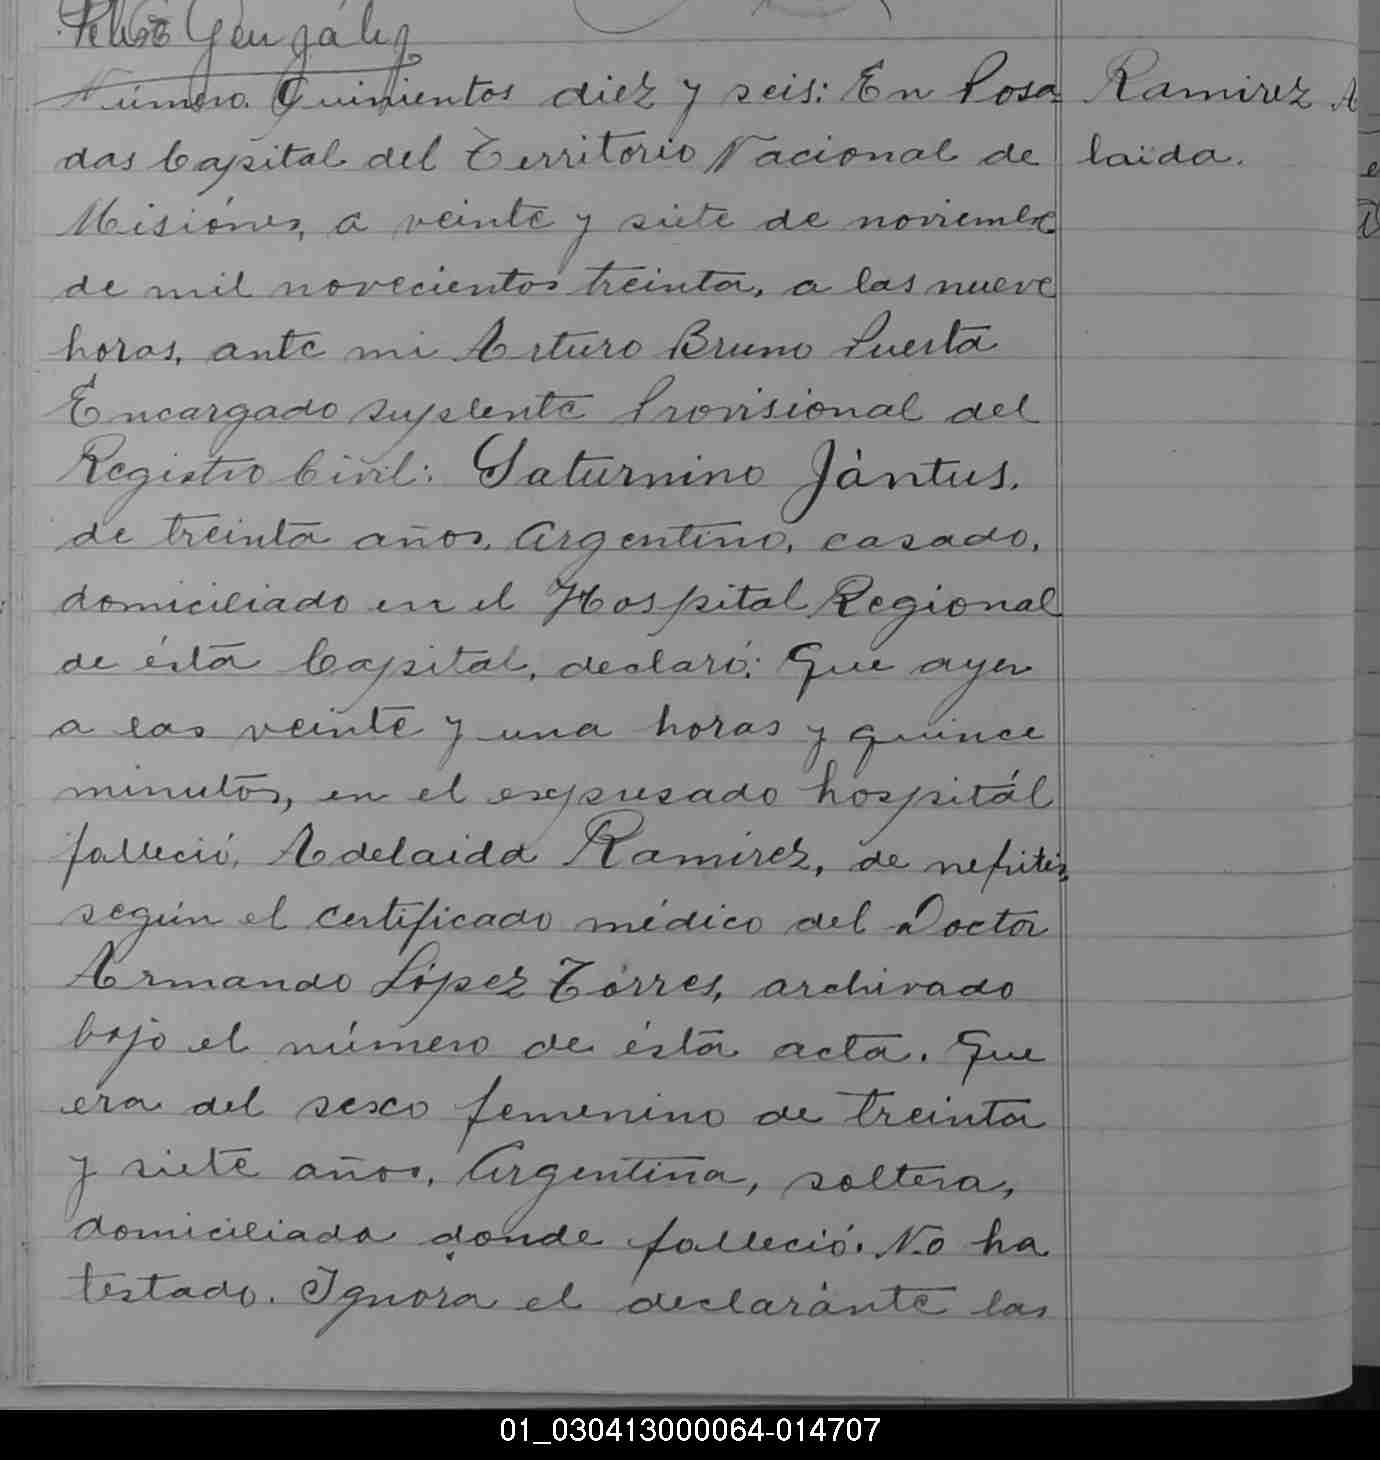 González
Número. Quinientos diez y seis: En Posa
das Capital del Territorio Nacional de
Misiónes, a veinte y siete de noviembre
de mil novecientos treinta, a las nueve
horas, ante mi Arturo Bruno Puerta
Encargado suplente Provisional del
Registro Civil: Saturnino Jántus.
de treinta años, Argentino, casado,
domiciliado en el Hospital Regional
de ésta Capital, declaró: Que ayer
a las veinte y una horas y quince
minutos, en el expresado hospitál
falleció, Adelaida Ramirez, de nefritis,
según el certificado médico del Doctor
Armando López Tórres, archivado
bajo el número de ésta acta. Que
era del sexo femenino de treinta
y siete años, Argentina, soltera,
domiciliada donde falleció. No ha
testado. Ignora el declaránte las
Ramirez A
laida.
01_030413000064-014707